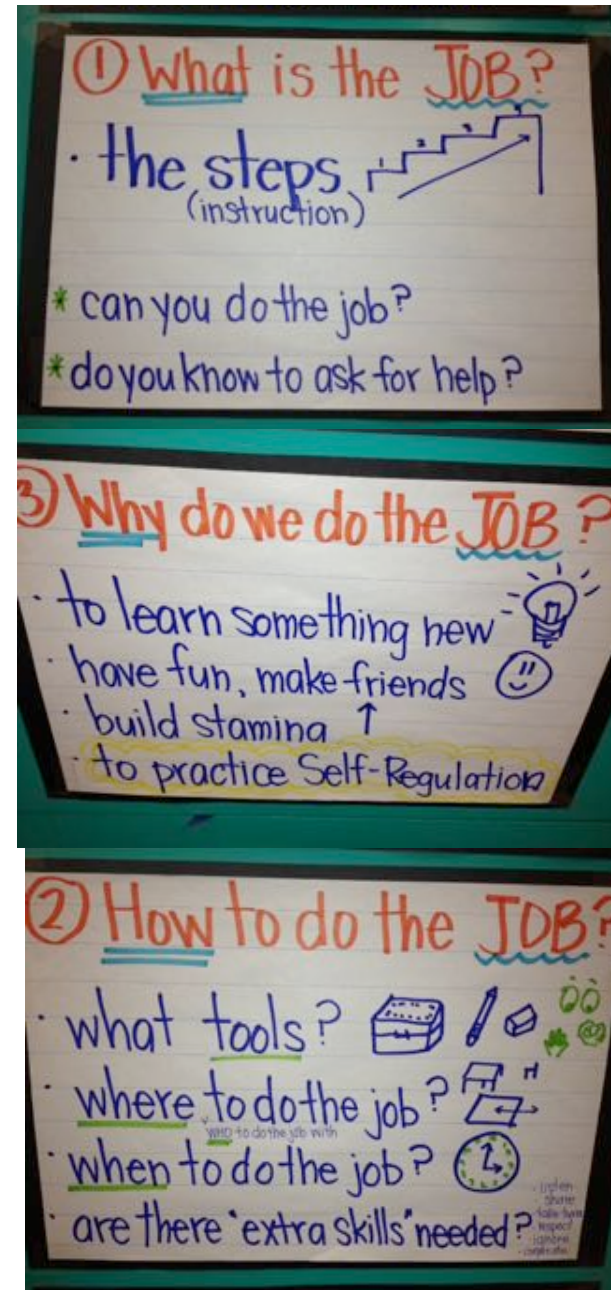 ① What is the JOB?
· the steps
(instruction)
1
2
3
* can you do the job?
* do you know to ask for help?
③ Why do we do the JOB?
· to learn something new
· have fun, make friends
· build stamina ↑
· to practice Self-Regulation
② How to do the JOB?
· what tools?
· where to do the job?
WHO to do the job with
· when to do the job?
· are there "extra skills" needed?
- listen
- share
- take turns
- respect
- ignore